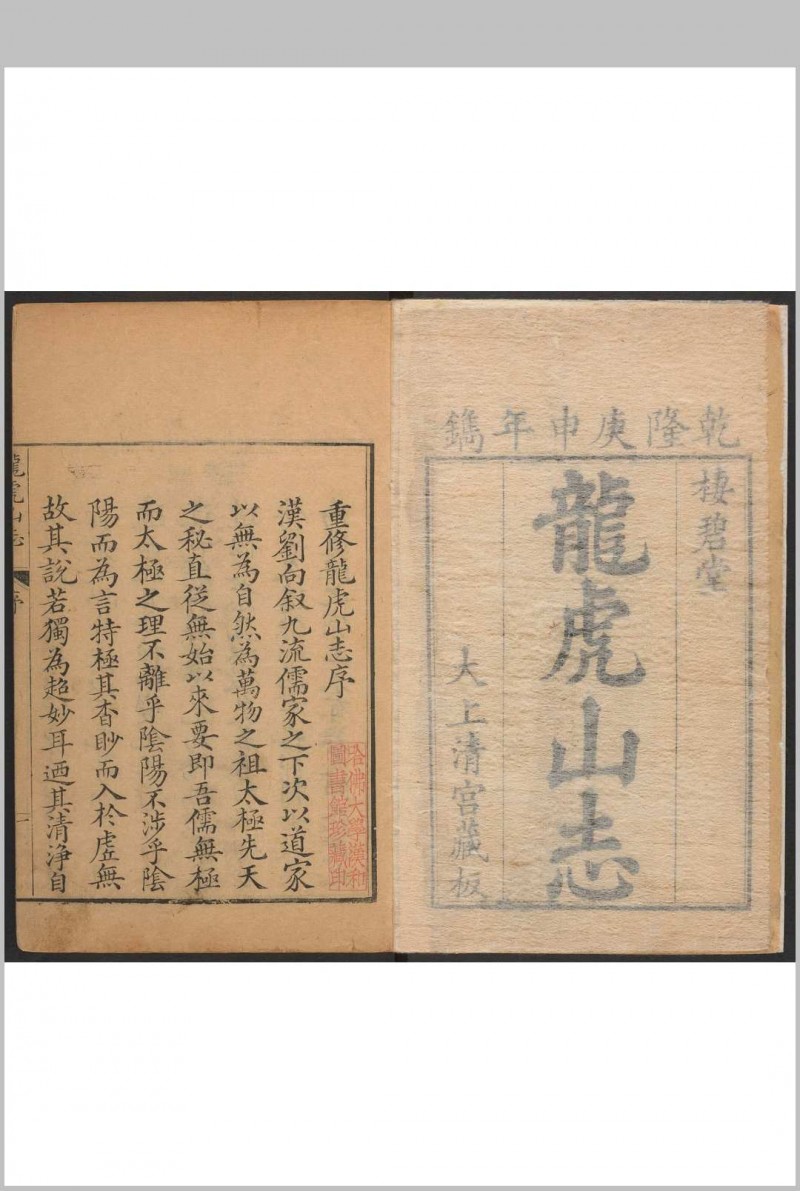 乾隆庚申年鐫
棲碧堂
龍虎山志
大上清宮藏板
重修龍虎山志序
漢劉向叙九流儒家之下次以道家
以無為自然為萬物之祖太極先天
之秘直從無始以來要即吾儒無極
而太極之理不離乎陰陽不涉乎陰
陽而為言特極其杳眇而入於虛無
故其說若獨為超妙耳迺其清淨自
哈佛大學漢和
圖書館珍藏印
龍虎山志
序
一